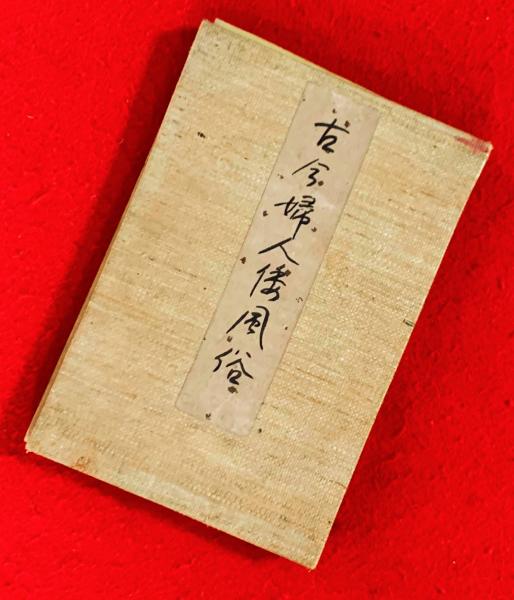 古今婦人倭風俗